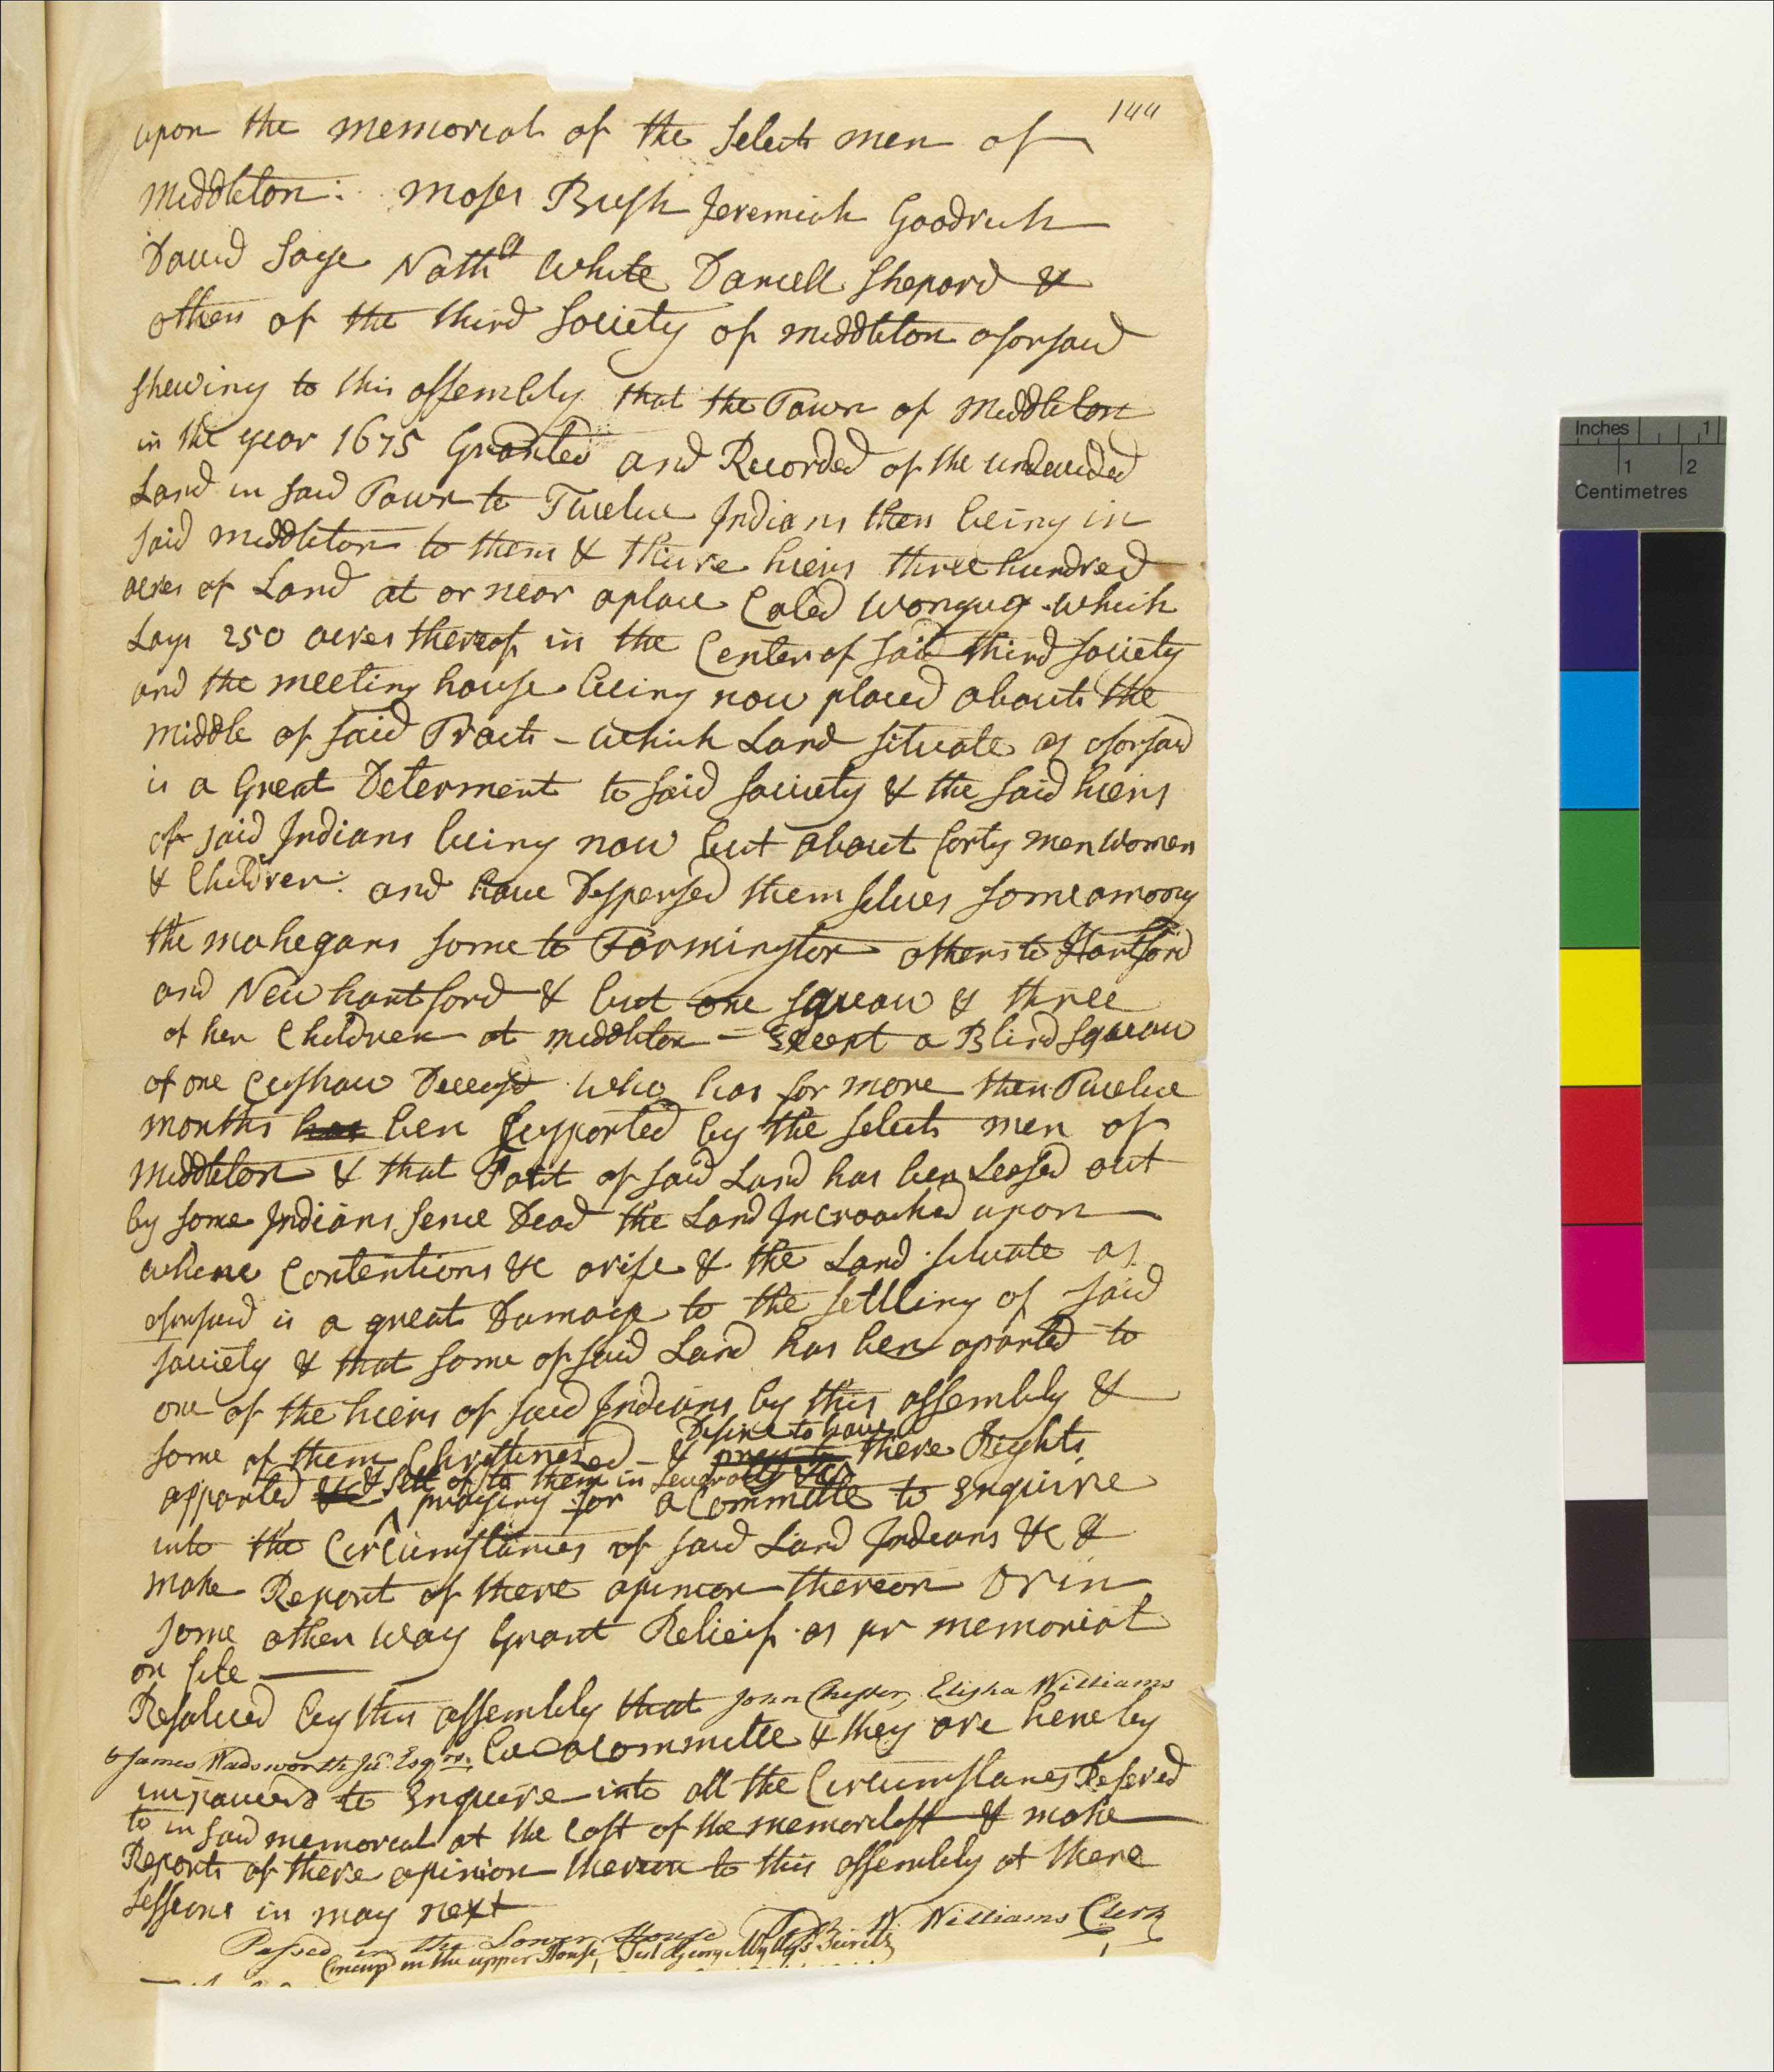 144
upon the memorial of the Select men of
middleton: Moses Bush Jeremiah Goodrich
David Sage Nathll White Daniell Shepard &
others of the third Society of middleton aforsaid
Shewing to this assembly that the Town of middleton
in the year 1675 Granted and Recorded of the undevided
Land in said Town to Twelve Indians then being in
said middleton to them & theire hiers three hundred
acres of Land at or near a place Caled wongug which
Lays 250 acres thereof in the Center of said third society
and the meeting house being now placed about the
middle of said Tract – which Land situate as aforsaid
is a Great Determent to said society & the said hiers
of said Indians being now but about forty men Women
& Children: and have Despersed them selves some among
the mohegans some to Farmington others to Hartford
and New hartford & but one squaw & three
of her Children at middleton – Except a Blind Squaw
of one Cushaw Deceast who has for more then Twelve
months has ben supported by the select men of
middleton & that Part of said Land has ben Leased out
by some Indians sence Dead the Land Incroached upon
whence Contentions &c arise & the Land situate as
aforsaid is a great Damage to the settling of said
society & that some of said Land has ben aparted to
one of the hiers of said Indians by this assembly &
Desire to have
some of them Christenised – & pray to there Rights
& sett of to them in severalty &c
apparted &c praying for a Committe to Enquire
into the Circumstances of said Land Indians &c &
make Report of there opinion thereon Or in
some other way Grant Relieif as pr memorial
on file
Resolved by this assembly that John Chester, Elisha Williams
& James Wadsworth Jur. Esqrs. be a Committe & they are hereby
impowered to Enquire into all the Circumstances Refered
to in said memorial at the Cost of the memorilist & make
Report of there opinion thereon to this assembly at there
Sessions in may next
Passed in the Lower House Test W. Williams Clerk
Concurd in the upper House, Test George Wyllys Secretry
Inches 1
1 2
Centimetres